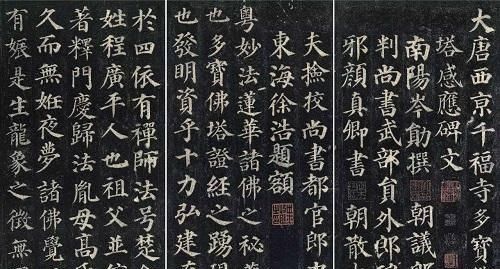 大唐西京千福寺多寶
塔感應碑文
南陽岑勛撰 朝議
判尚書武部員外郎
邪顏真卿書 朝散
夫撿校尚書都官郎
東海徐浩題額
粵妙法蓮華諸佛之秘
也多寶佛塔證經之踴
也發明資乎十力弘建
於四依有禪師法号楚
姓程廣平人也祖父並
著釋門慶歸法胤母高
久而無姙夜夢諸佛覺
有娠是生龍象之徵無